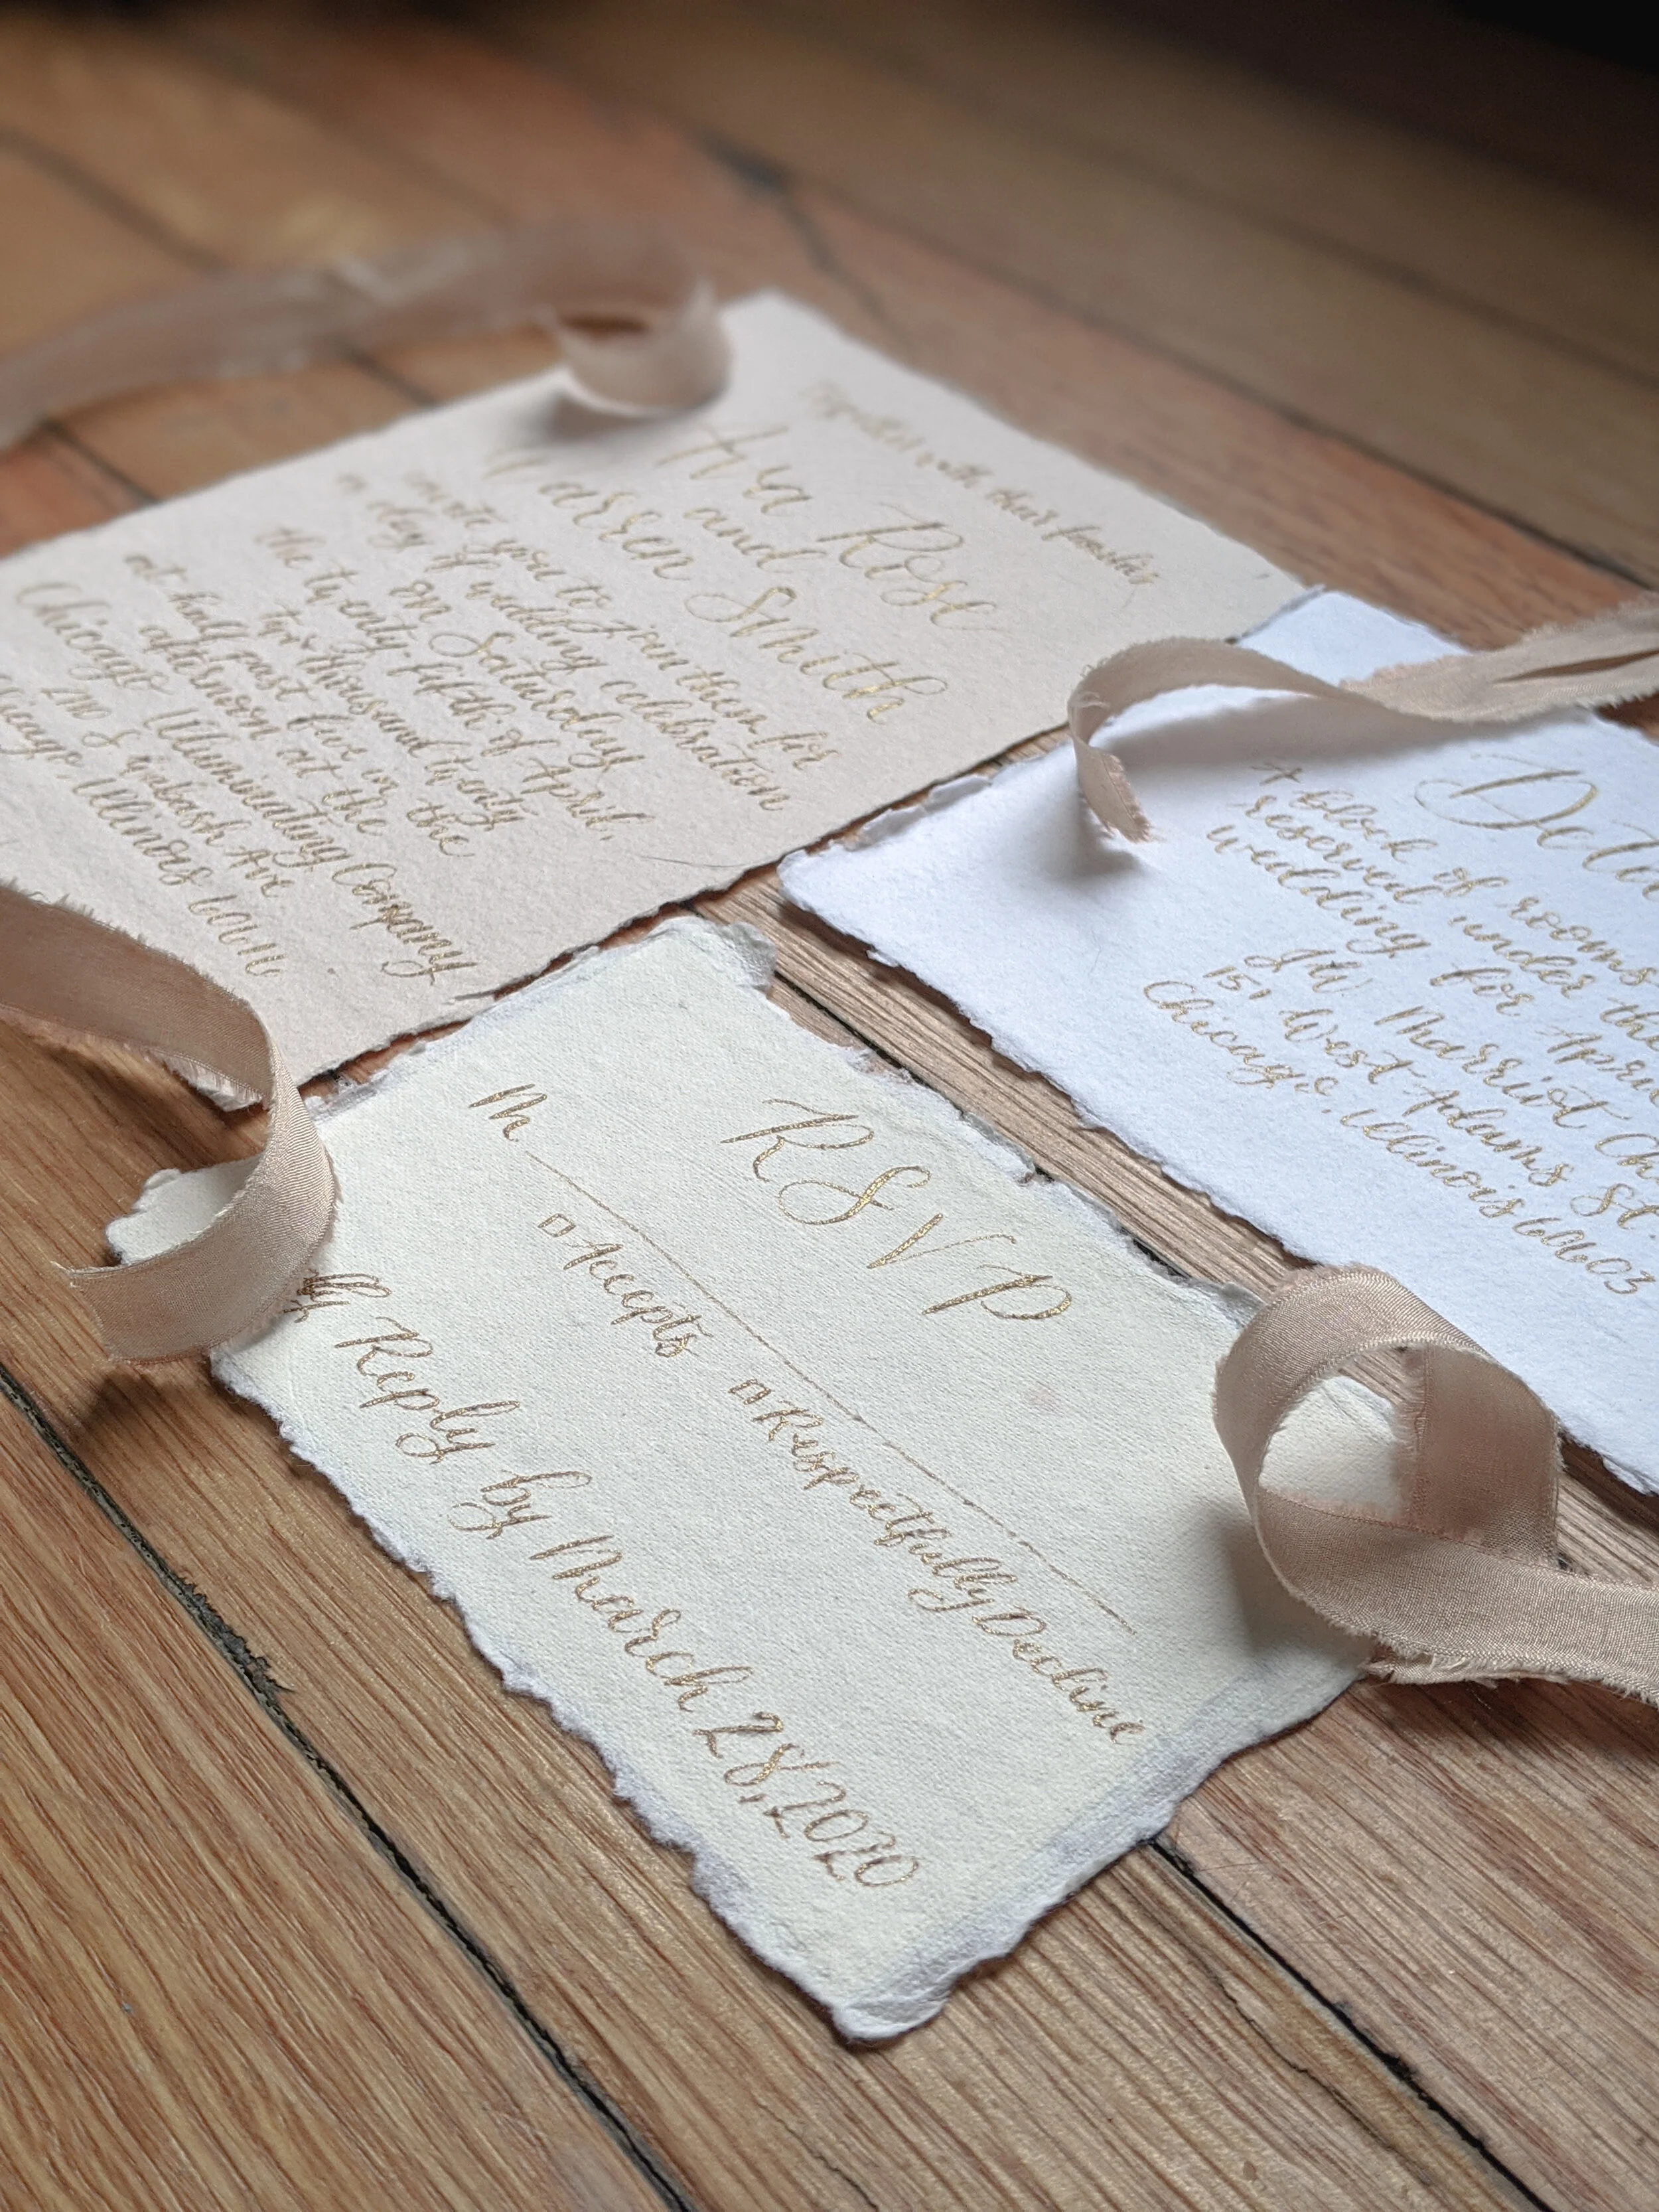 Together with their families
Ava Rose
and
Warren Smith
invite you to join them for
a day of wedding celebration
on Saturday
the twenty fifth of April,
two thousand twenty
at half past five in the
afternoon at the
Illuminating Company
Chicago
2110 S Wabash Ave
Chicago, Illinois
Deta
A block of rooms
reserved under the
wedding for Apri
JW Marriot Ch
151 West Adams St
Chicago, Illinois 60603
RSVP
M
Accepts Respectfully Decline
Kindly Reply by March 28, 2020